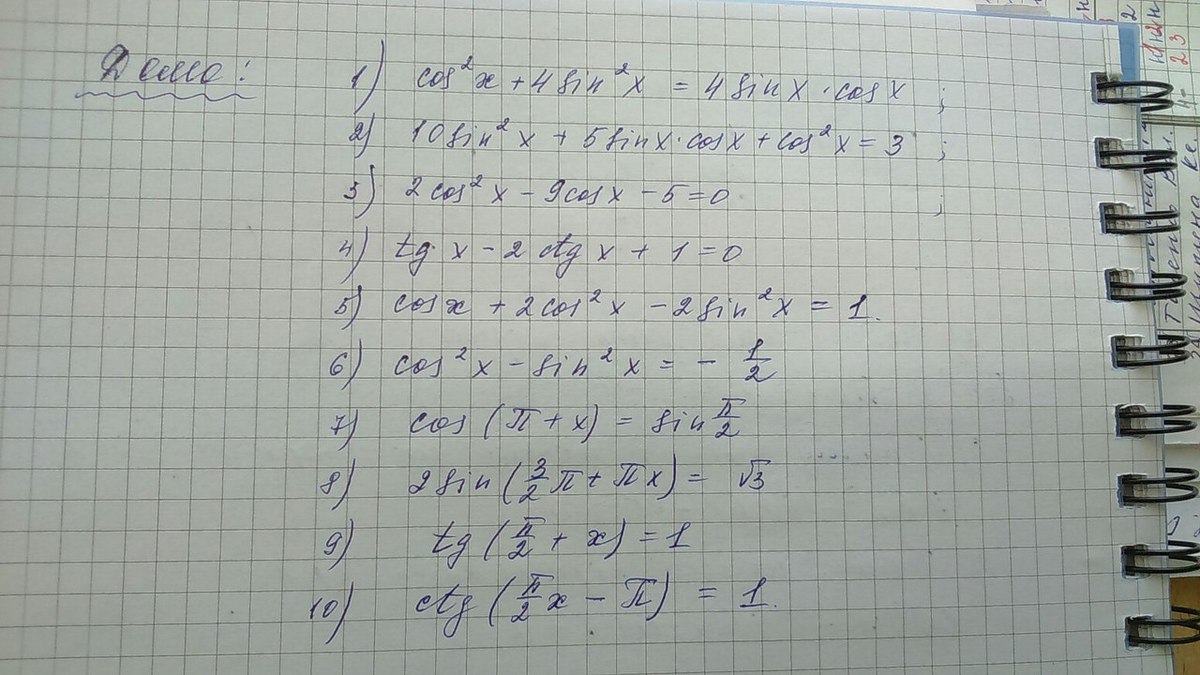 Дома:
1) cos²x + 4 sin²x = 4 sin x · cos x ;
2) 10 sin²x + 5 sin x · cos x + cos²x = 3 ;
3) 2 cos²x − 9 cos x − 5 = 0 ;
4) tg x − 2 ctg x + 1 = 0
5) cos x + 2 cos²x − 2 sin²x = 1.
6) cos²x − sin²x = − 1/2
7) cos (π + x) = sin π/2
8) 2 sin (3/2 π + πx) = √3
9) tg (π/2 + x) = 1
10) ctg (π/2 x − π) = 1.